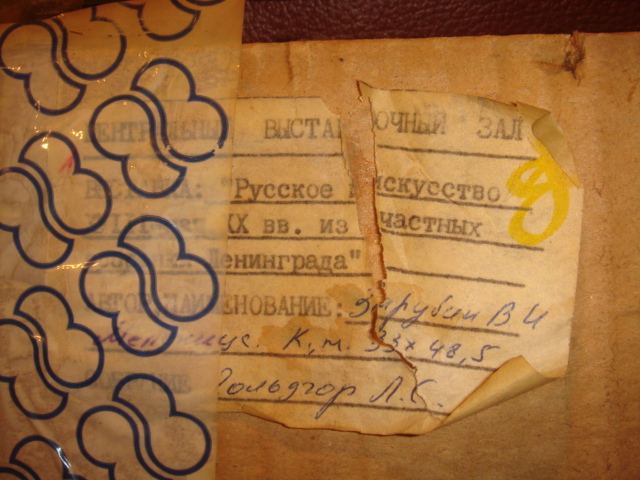 ЦЕНТРАЛЬНЫЙ ВЫСТАВОЧНЫЙ ЗАЛ
ВЫСТАВКА: "Русское искусство
XX вв. из частных
Ленинграда"
АВТОР, НАИМЕНОВАНИЕ: Зарубин В И
К, м. 33х48,5
Гольдгор Л.С.